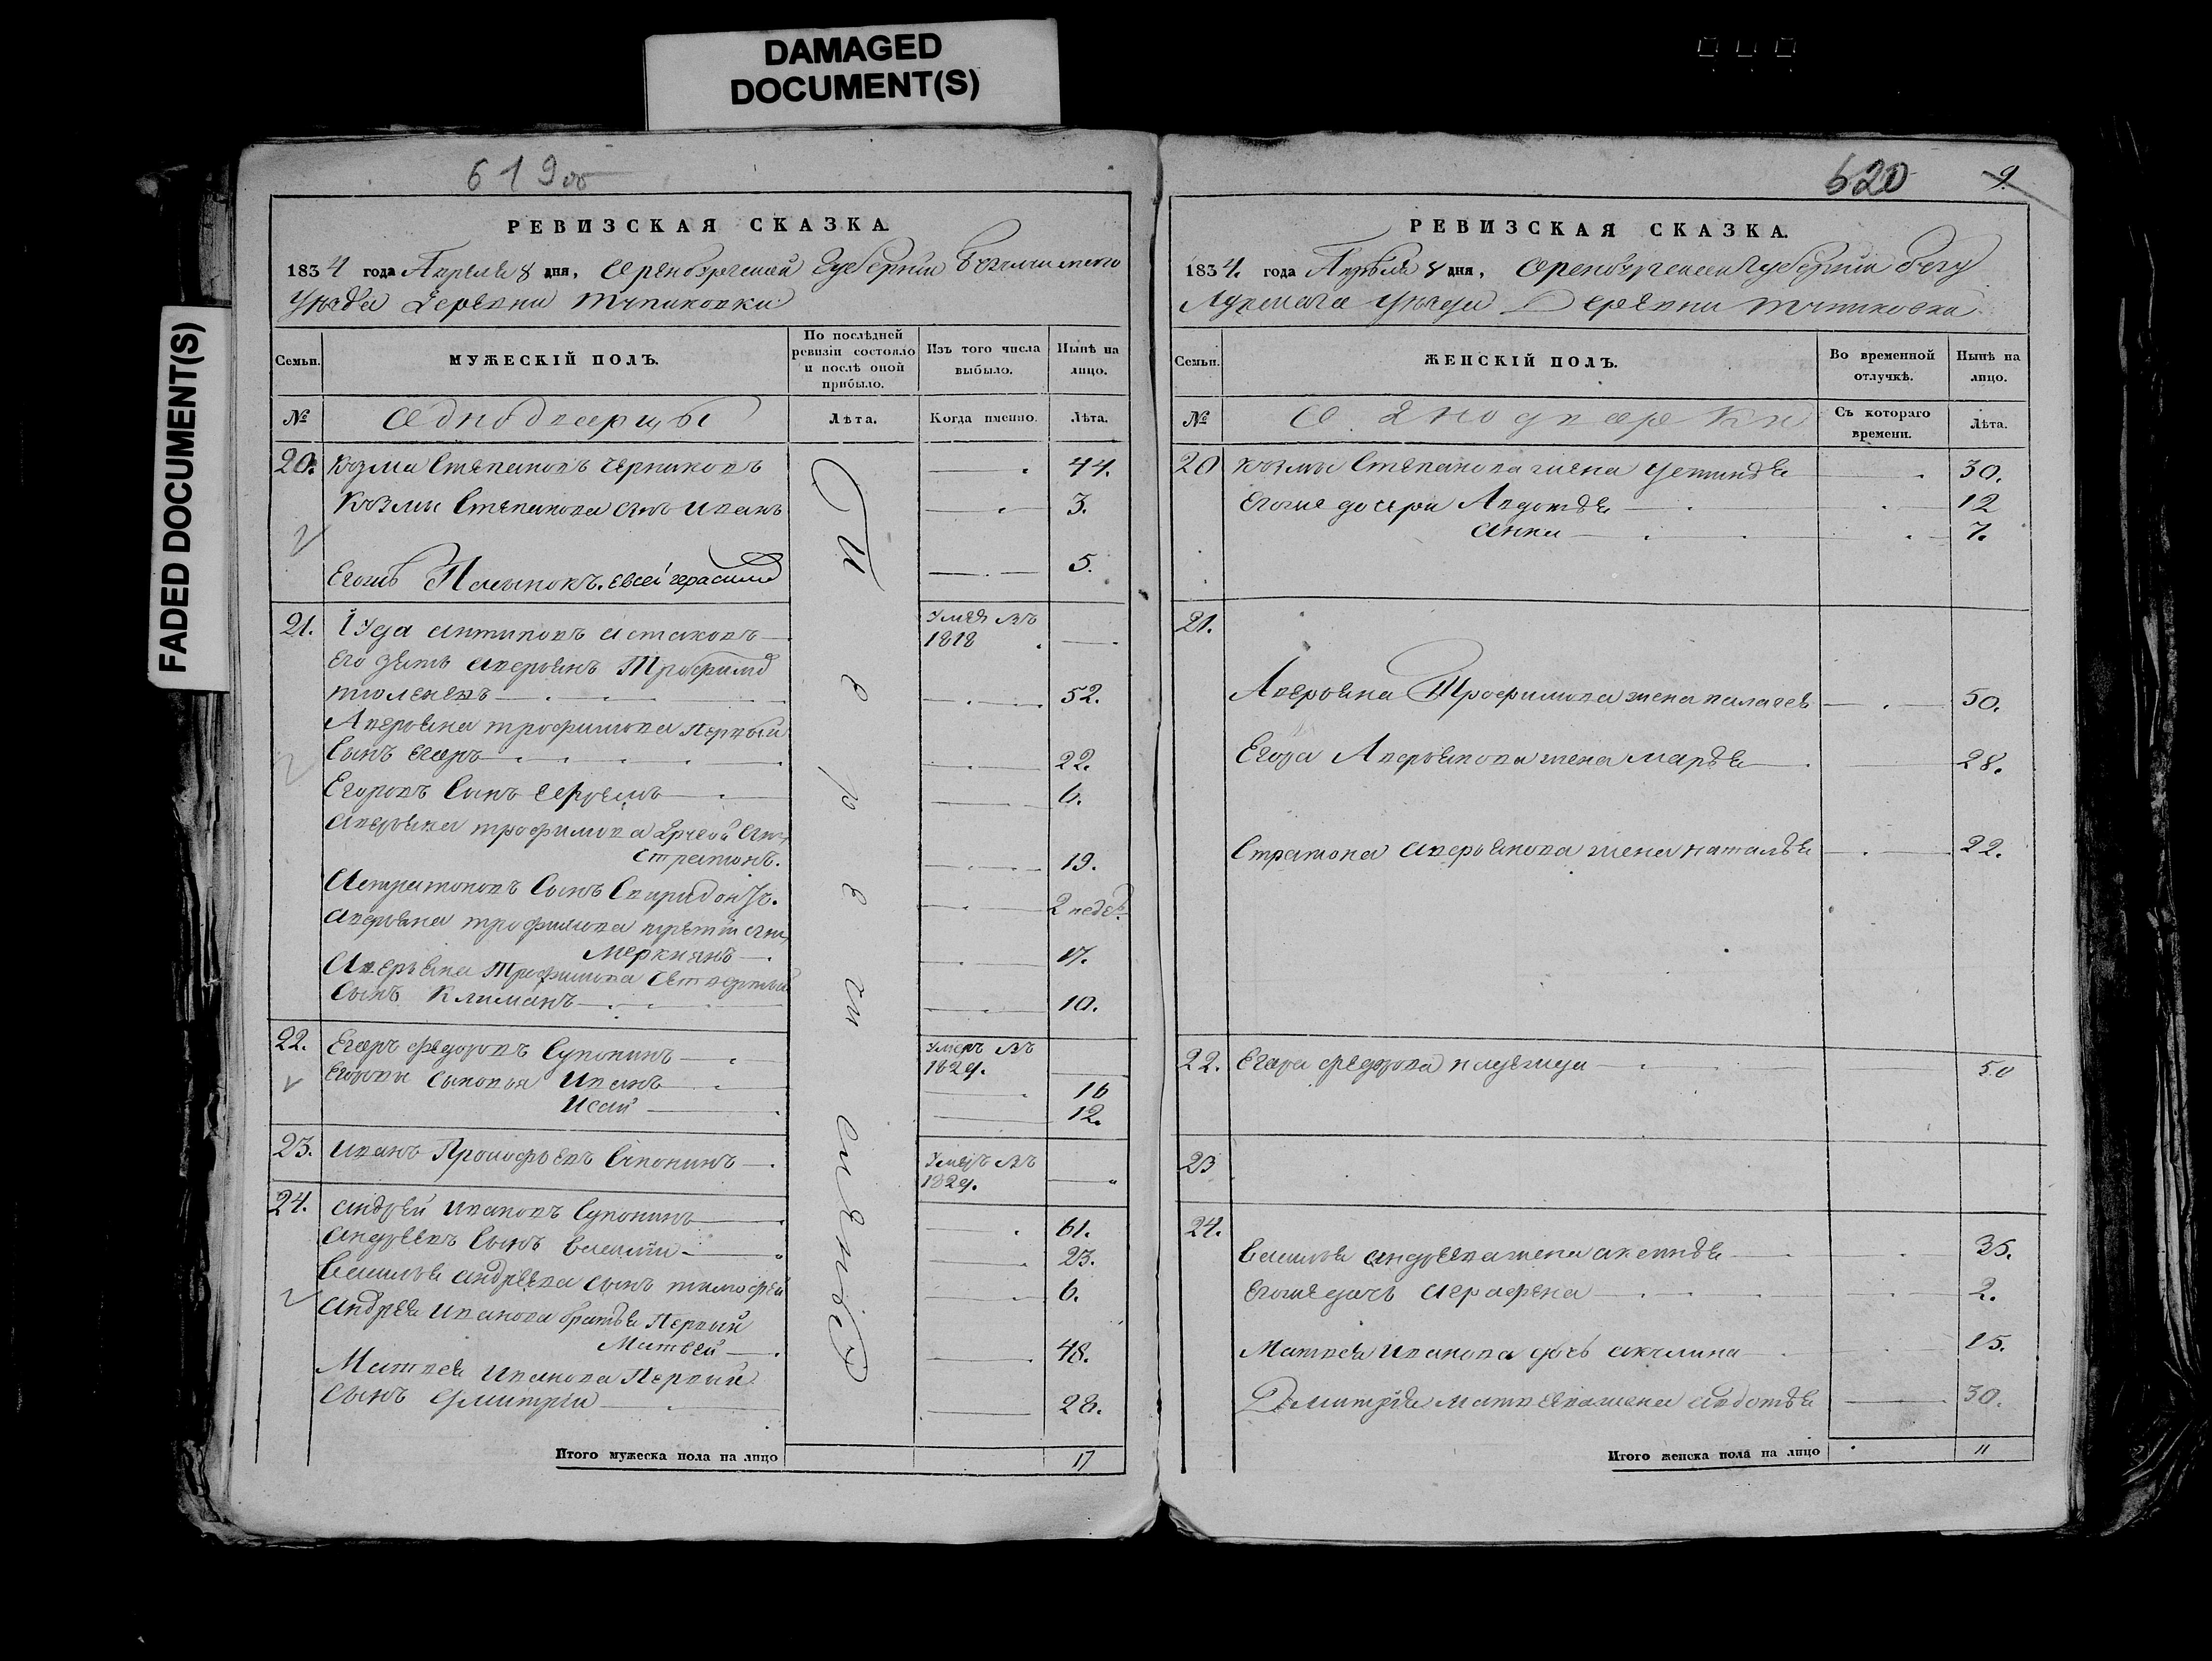 DAMAGED
DOCUMENT(S)
FADED DOCUMENT(S)
619 об
РЕВИЗСКАЯ СКАЗКА.
1834 года Апреля 8 дня, Оренбургской Губернии
Уезда Деревни
Семьи.
МУЖЕСКІЙ ПОЛЪ.
По послѣдней
ревизіи состояло
и послѣ оной
прибыло.
Изъ того числа
выбыло.
Нынѣ на
лицо.
№
Однодворцы
Лѣта.
Когда именно.
Лѣта.
20. Козма Степановъ 44.
Козмы Степанова сынъ Иванъ 3.
Егожъ 5.
21. Іуда Антиповъ Умеръ въ
1818
Его зять Аверьянъ Трофимо
52.
Аверьяна Трофимова первый
сынъ Егоръ 22.
Егоровъ сынъ 6.
Аверьяна Трофимова другой сынъ
Стратонъ. 19.
сынъ Спиридонъ. 2 недел
Аверьяна Трофимова третій сынъ
17.
Аверьяна Трофимова четвертый
сынъ 10.
22. Егоръ Федоровъ Супонинъ Умеръ въ
1829.
Егоровы сыновья Иванъ 16
Исай 12.
23. Иванъ Прокофьевъ Супонинъ Умеръ въ
1829.
24. Андрей Ивановъ Супонинъ 61.
Андреевъ сынъ Василій 23.
Василья Андреева сынъ Тимофей 6.
Андрея Иванова братья первый
Матвей 48.
Матвея Иванова первый
сынъ Дмитрій 28.
Итого мужеска пола на лицо 17
620 9.
РЕВИЗСКАЯ СКАЗКА.
1834. года Апреля 8 дня, Оренбургской Губернии Бугу
Уезда Деревни
Семьи.
ЖЕНСКІЙ ПОЛЪ.
Во временной
отлучкѣ.
Нынѣ на
лицо.
№
Однодворки
Съ котораго
времени.
Лѣта.
20 Козмы Степанова жена 30.
Егоже дочери Авдотья 12
Анна 7.
21.
Аверьяна Трофимова жена 50.
Егора Аверьянова жена Марья 28.
Стратона Аверьянова жена Наталья 22.
22. Егора Федорова 50
23
24.
Василья Андреева жена 35.
Егоже дочь 2.
Матвея Иванова дочь Акулина 15.
Дмитрія Матвеева жена Авдотья 30.
Итого женска пола на лицо 11